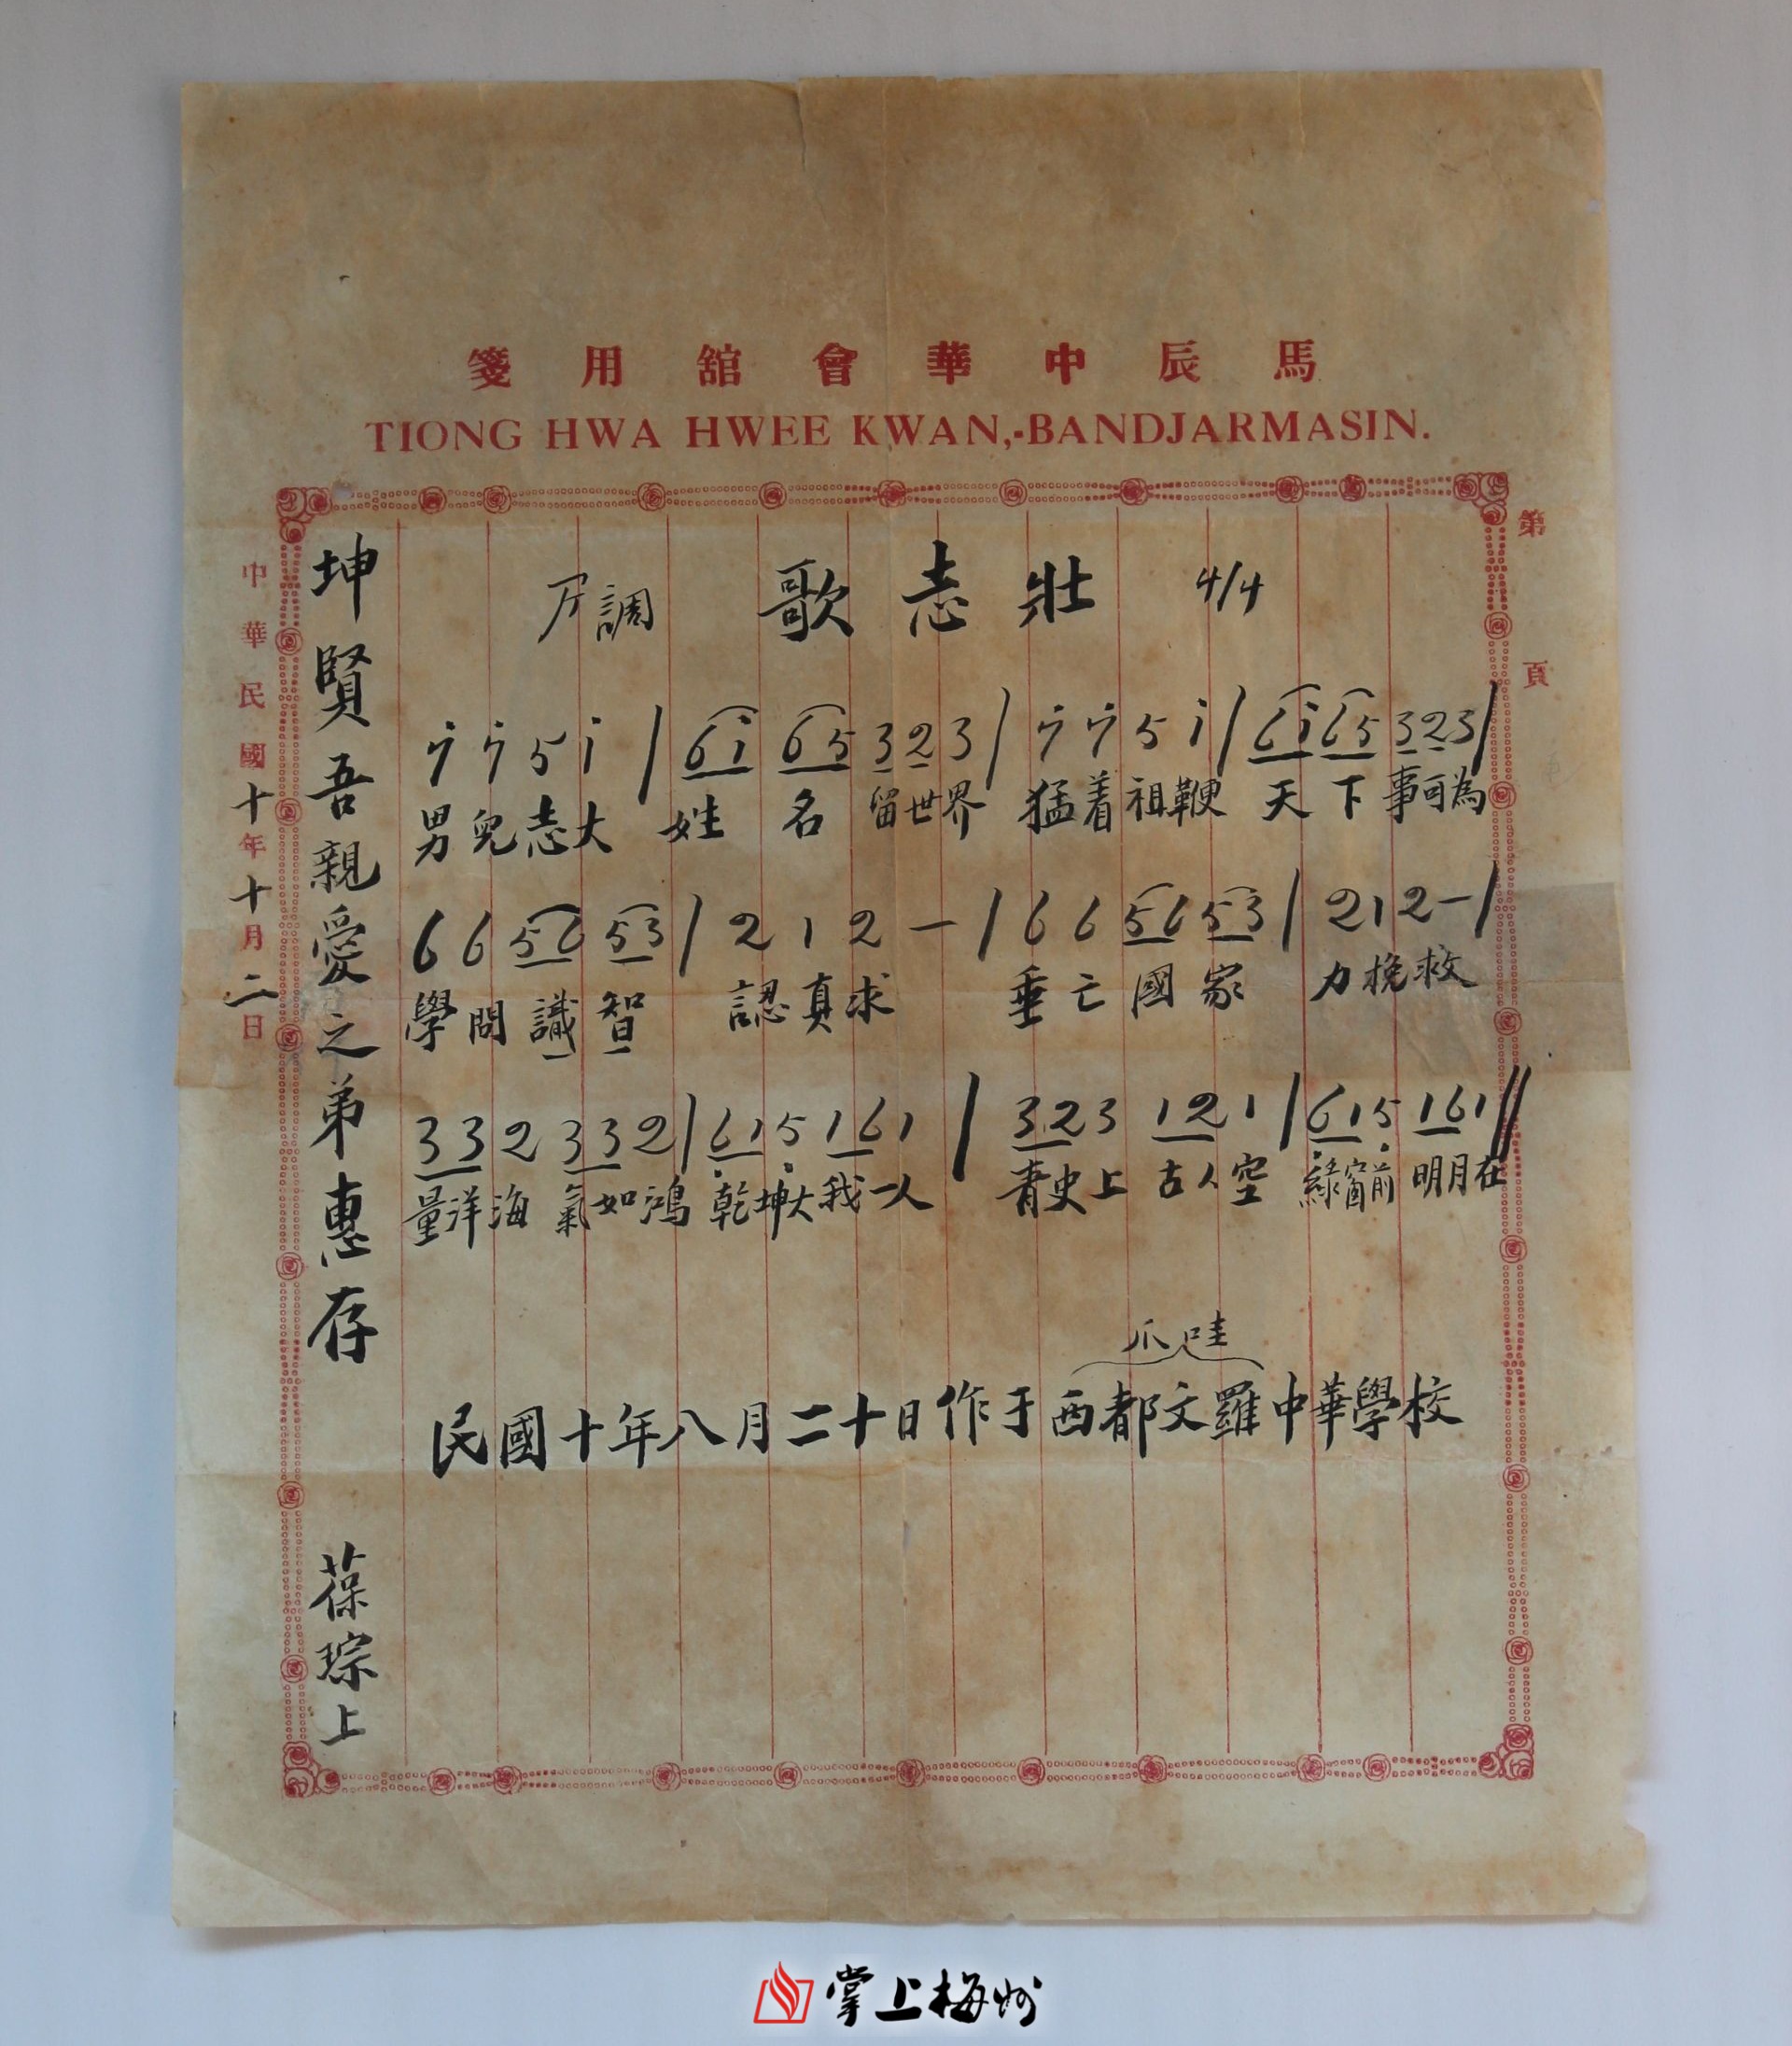 馬辰中華會舘用箋
TIONG HWA HWEE KWAN,-BANDJARMASIN.
第 頁
4/4 壯志歌 調
5 i / 6 i 6 5 3 2 3 / 5 i / 6 i 6 5 3 2 3 /
男兒志大 姓名留世界 猛着祖鞭 天下事可為
6 6 5 6 5 3 / 2 1 2 — / 6 6 5 6 5 3 / 2 1 2 — /
學問識智 認真求 垂亡國家 力挽救
3 3 2 3 3 2 / 6 1 5 1 6 1 / 3 2 3 1 2 1 / 6 1 5 1 6 1 //
量洋海 氣如鴻 乾坤大我一人 青史上 古人空 綠窗前 明月在
爪哇
民國十年八月二十日作于西都文羅中華學校
坤賢吾親愛之弟惠存 葆琮上
中華民國十年十月二日
掌上梅州